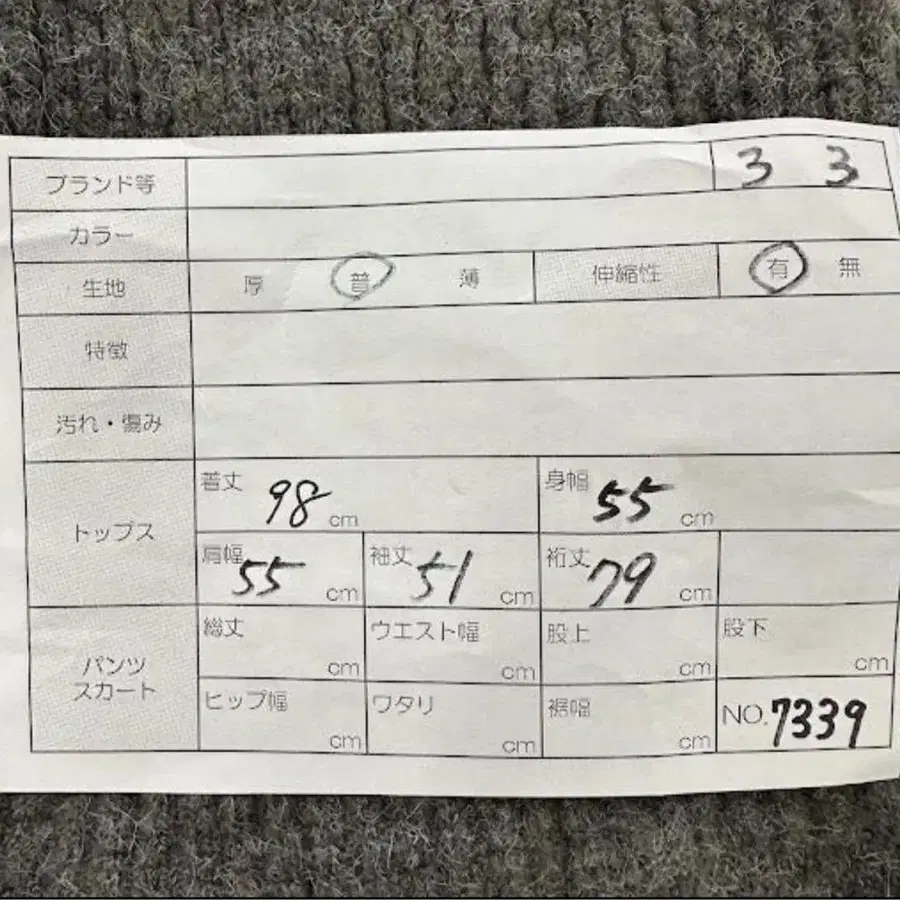 ブランド等 3 3
カラー
生地 厚 普 薄 伸縮性 有 無
特徴
汚れ・傷み
トップス
着丈 98 cm 身幅 55 cm
肩幅 55 cm 袖丈 51 cm 裄丈 79 cm
パンツ
スカート
総丈 cm ウエスト幅 cm 股上 cm 股下 cm
ヒップ幅 cm ワタリ cm 裾幅 cm NO.7339